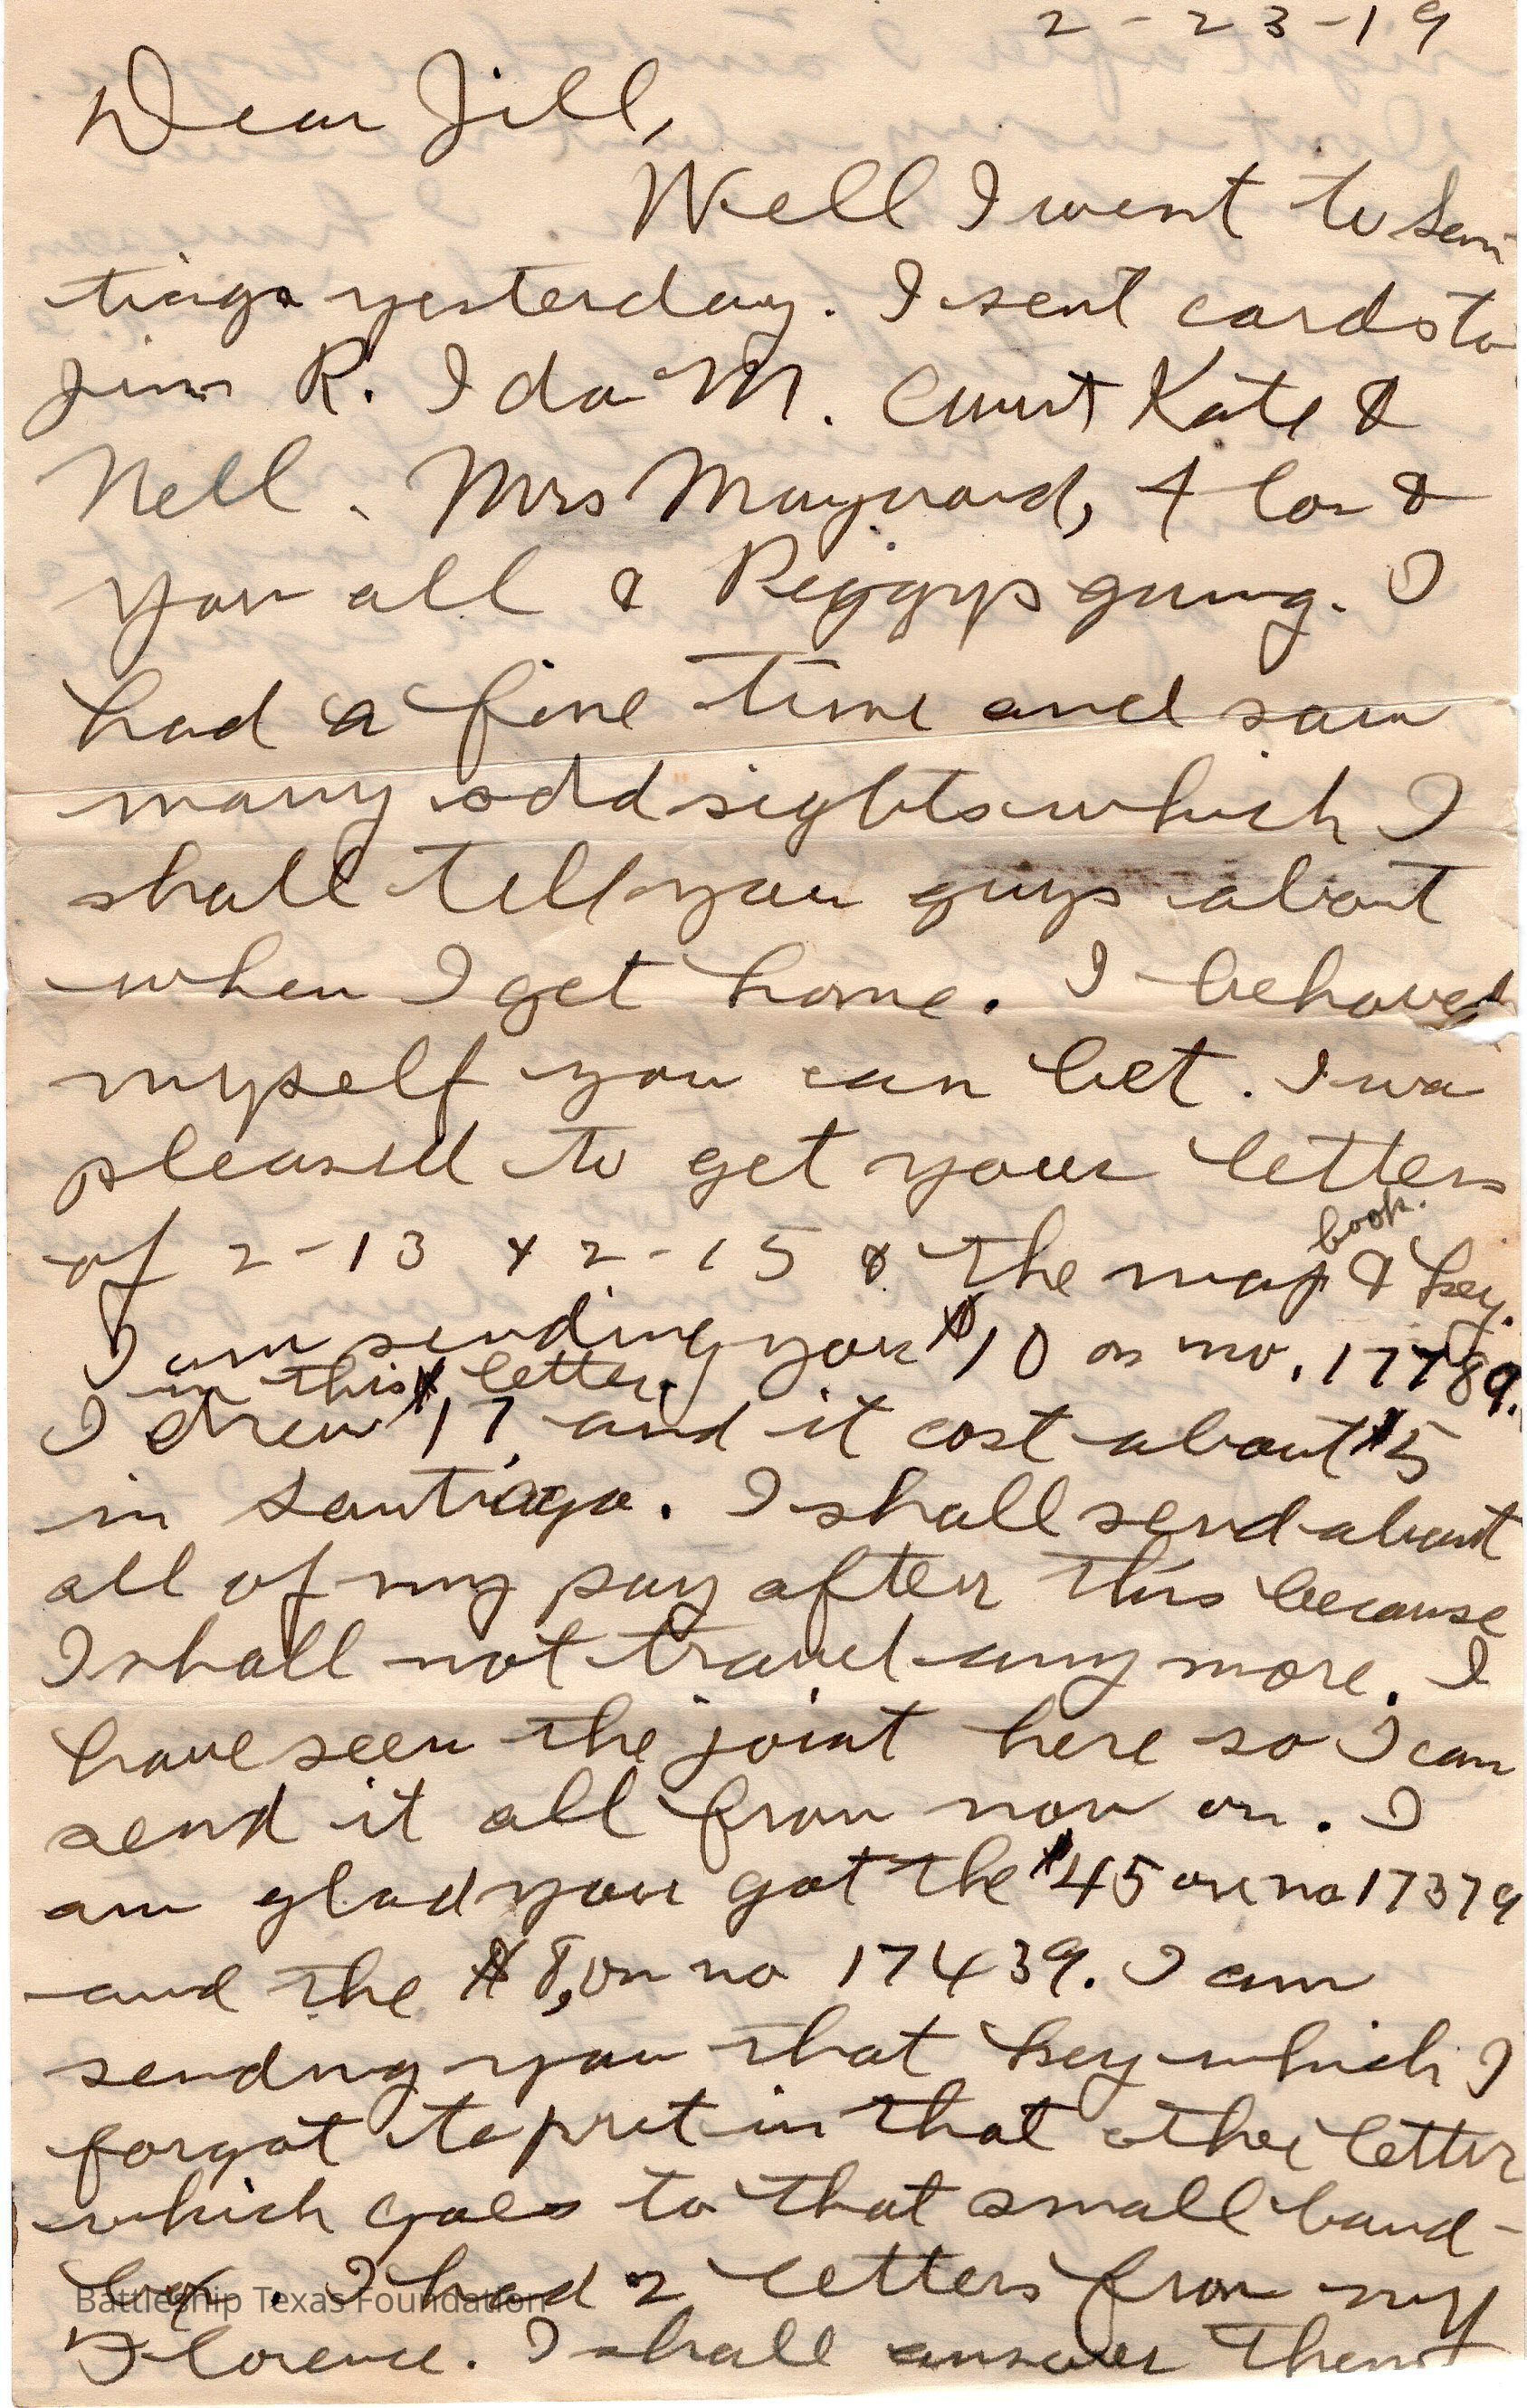 2-23-19
Dear Jill,
Well I went to San
tiago yesterday. I sent cards to
Jim R. Ida M. Aunt Kate &
Nell. Mrs Maynard, Flor &
you all & Peggys gang. I
had a fine time and saw
many odd sights which I
shall tell you guys about
when I get home. I behaved
myself you can bet. I wa
pleased to get your letters
of 2-13 & 2-15 & the map & key.
book.
I am sending you $10 on no. 17789.
in this letter.
I drew $17 and it cost about $5
in Santiago. I shall send about
all of my pay after this because
I shall not travel any more. I
have seen the joint here so I can
send it all from now on. I
am glad you got the $45 on no 17379
and the $8, on no 17439. I am
sendng you that key which I
forgot to put in that other letter
which goes to that small hand-
I had 2 letters from my
Florence. I shall answer them
Battleship Texas Foundation